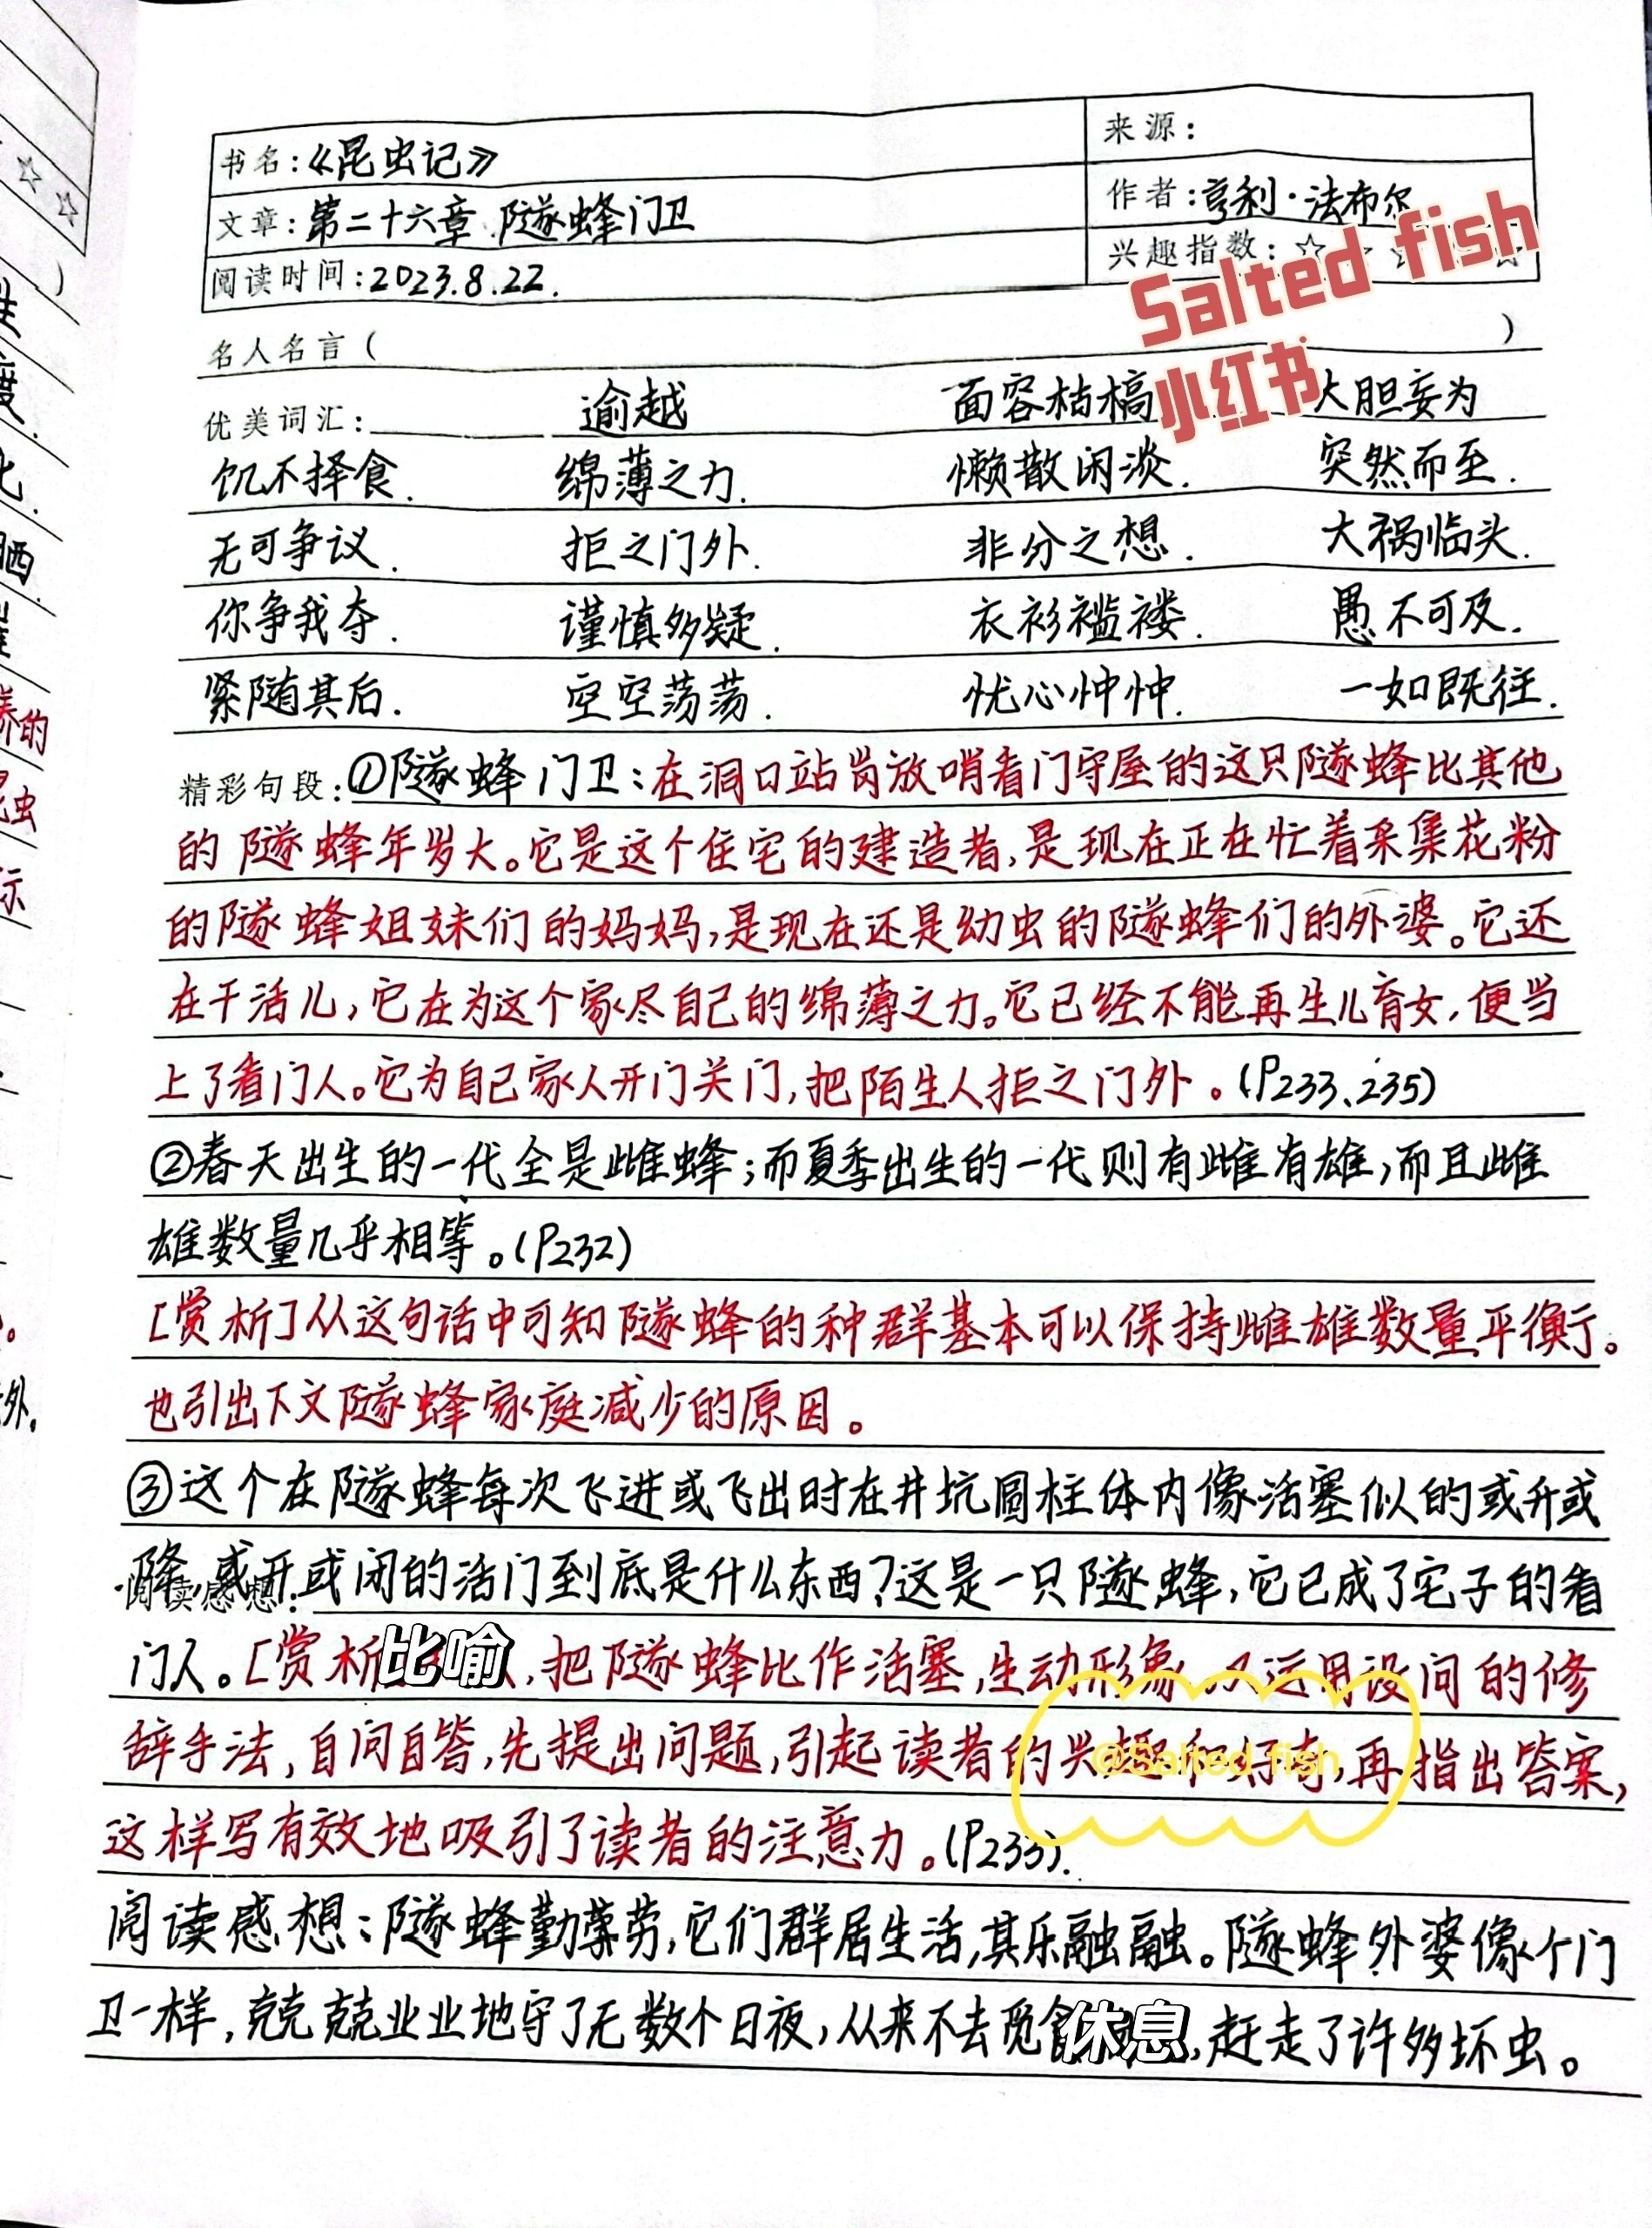 书名：《昆虫记》
来源：
文章：第二十六章 隧蜂门卫
作者：亨利·法布尔
阅读时间：2023.8.22.
兴趣指数：☆
Salted fish
小红书
名人名言（ ）
优美词汇： 逾越 面容枯槁 大胆妄为
饥不择食. 绵薄之力. 懒散闲淡. 突然而至.
无可争议. 拒之门外. 非分之想. 大祸临头.
你争我夺. 谨慎多疑. 衣衫褴褛. 愚不可及.
紧随其后. 空空荡荡. 忧心忡忡. 一如既往.
精彩句段：①隧蜂门卫：在洞口站岗放哨看门守屋的这只隧蜂比其他
的隧蜂年岁大。它是这个住宅的建造者，是现在正在忙着采集花粉
的隧蜂姐妹们的妈妈，是现在还是幼虫的隧蜂们的外婆。它还
在干活儿，它在为这个家尽自己的绵薄之力。它已经不能再生儿育女，便当
上了看门人。它为自己家人开门关门，把陌生人拒之门外。(P233、235)
②春天出生的一代全是雌蜂；而夏季出生的一代则有雌有雄，而且雌
雄数量几乎相等。(P232)
[赏析]从这句话中可知隧蜂的种群基本可以保持雌雄数量平衡。
也引出下文隧蜂家庭减少的原因。
③这个在隧蜂每次飞进或飞出时在井坑圆柱体内像活塞似的或升或
降，或开或闭的活门到底是什么东西？这是一只隧蜂，它已成了宅子的看
阅读感想：
门人。[赏析 比喻，把隧蜂比作活塞，生动形象，又运用设问的修
辞手法，自问自答，先提出问题，引起读者的兴趣和好奇，再指出答案，
@Salted fish
这样写有效地吸引了读者的注意力。(P233).
阅读感想：隧蜂勤劳，它们群居生活，其乐融融。隧蜂外婆像个门
卫一样，兢兢业业地守了无数个日夜，从来不去觅食 休息，赶走了许多坏虫。
养的
昆虫
示
外。